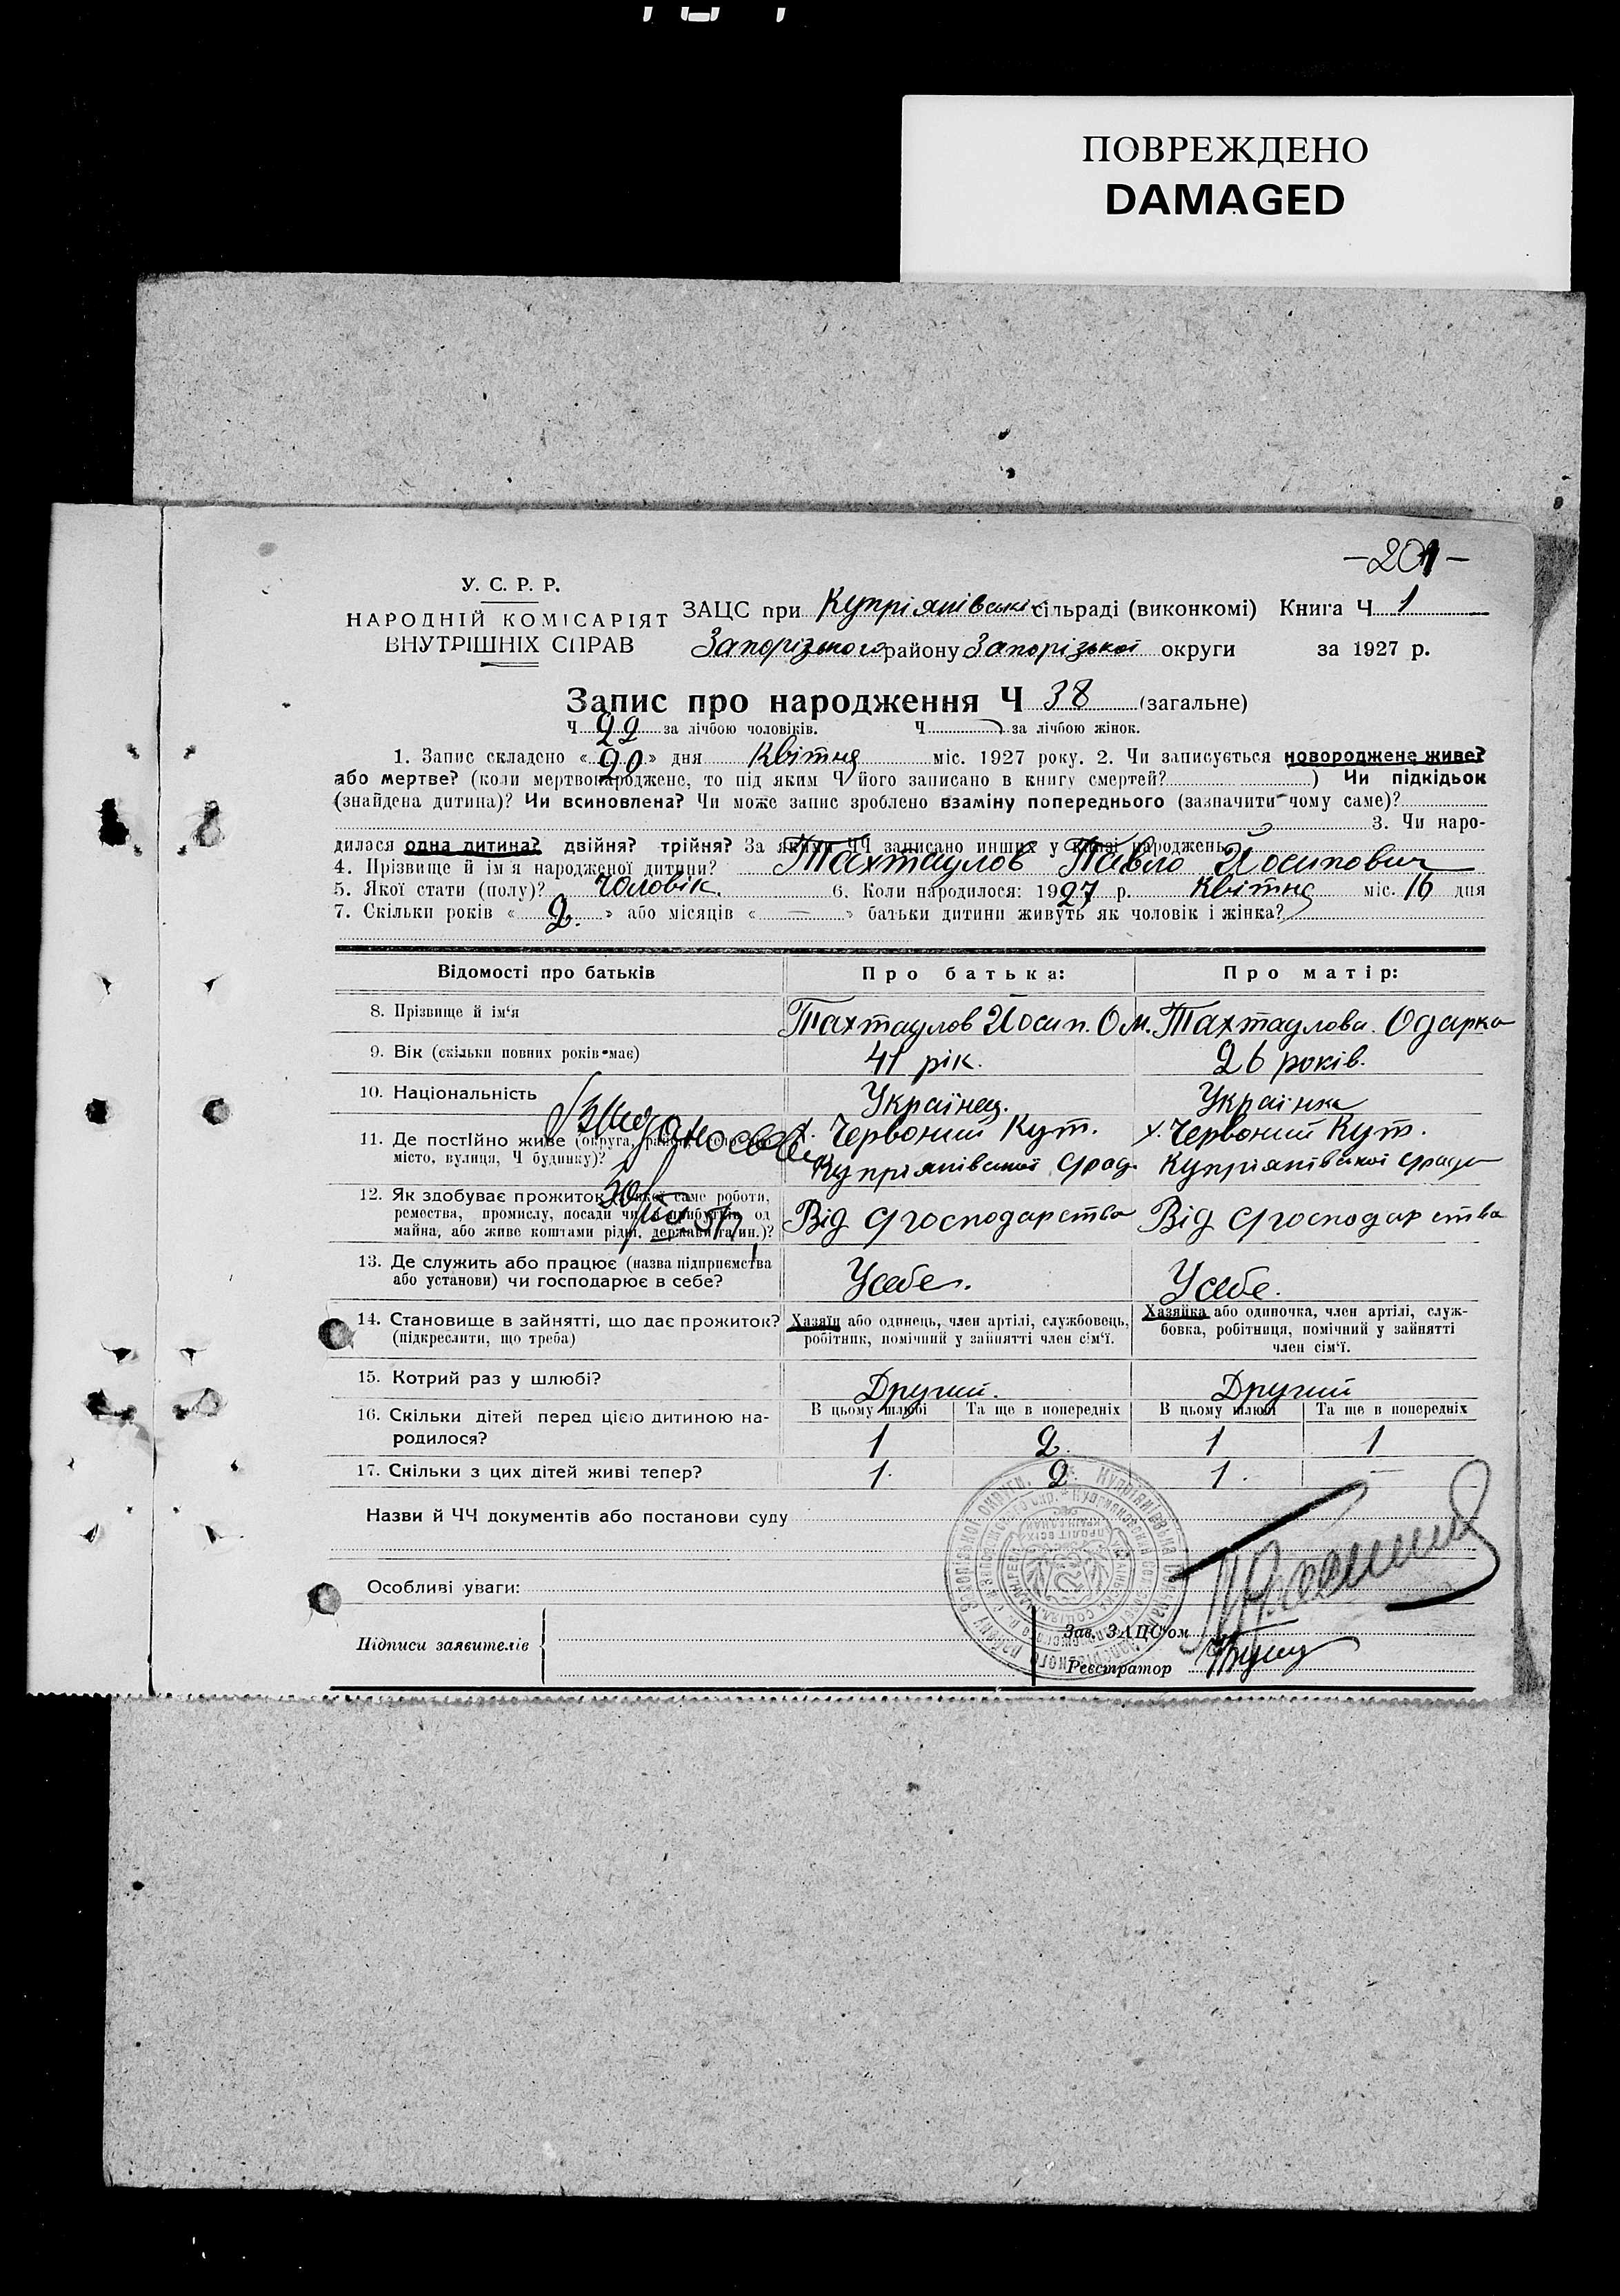 ПОВРЕЖДЕНО
DAMAGED
-201-
У. С. Р. Р.
НАРОДНІЙ КОМІСАРІЯТ
ВНУТРІШНІХ СПРАВ
ЗАЦС при Купріянівські сільраді (виконкомі) Книга Ч 1
Запорізького району Запорізької округи за 1927 р.
Запис про народження Ч 38 (загальне)
Ч 22 за лічбою чоловіків. Ч за лічбою жінок.
1. Запис складено «20» дня Квітня міс. 1927 року. 2. Чи записується новороджене живе?
або мертве? (коли мертвонароджене, то під яким Ч його записано в книгу смертей? ) Чи підкідьок
(знайдена дитина)? Чи всиновлена? Чи може запис зроблено взаміну попереднього (зазначити чому саме)?
3. Чи наро-
дилася одна дитина? двійня? трійня? За якими ЧЧ записано инших у книзі народжень
4. Прізвище й ім'я народженої дитини? Тахтаулов Павло Йосипович
5. Якої стати (полу)? Чоловік. 6. Коли народилося: 1927 р. Квітня міс. 16 дня
7. Скільки років « 2. » або місяців « — » батьки дитини живуть як чоловік і жінка?
Відомості про батьків Про батька: Про матір:
8. Прізвище й ім'я Тахтаулов Йосип. Ом. Тахтаулова. Одарка
9. Вік (скільки повних років має) 41 рік. 26 років.
10. Національність Українец. Українка
11. Де постійно живе (округа, район, село або х. Червоний Кут. х. Червоний Кут.
місто, вулиця, Ч будинку)? Купріянівської с/рад. Купріянівської с/ради
12. Як здобуває прожиток (з якої саме роботи,
ремества, промислу, посади чи з прибутків од Від с/господарства Від с/господарства
майна, або живе коштами рідні, держави та ин.)?
13. Де служить або працює (назва підприємства
або установи) чи господарює в себе? Усебе. Усебе.
14. Становище в зайнятті, що дає прожиток? Хазяїн або одинець, член артілі, службовець, Хазяйка або одиночка, член артілі, служ-
(підкреслити, що треба) робітник, помічний у зайнятті член сім'ї. бовка, робітниця, помічний у зайнятті
член сім'ї.
15. Котрий раз у шлюбі? Другий. Другий
16. Скільки дітей перед цією дитиною на- В цьому шлюбі Та ще в попередніх В цьому шлюбі Та ще в попередніх
родилося? 1 2. 1 1
17. Скільки з цих дітей живі тепер? 1. 2. 1. —
Назви й ЧЧ документів або постанови суду
Особливі уваги:
Підписи заявителів
Зав. ЗАЦС'ом
Реєстратор